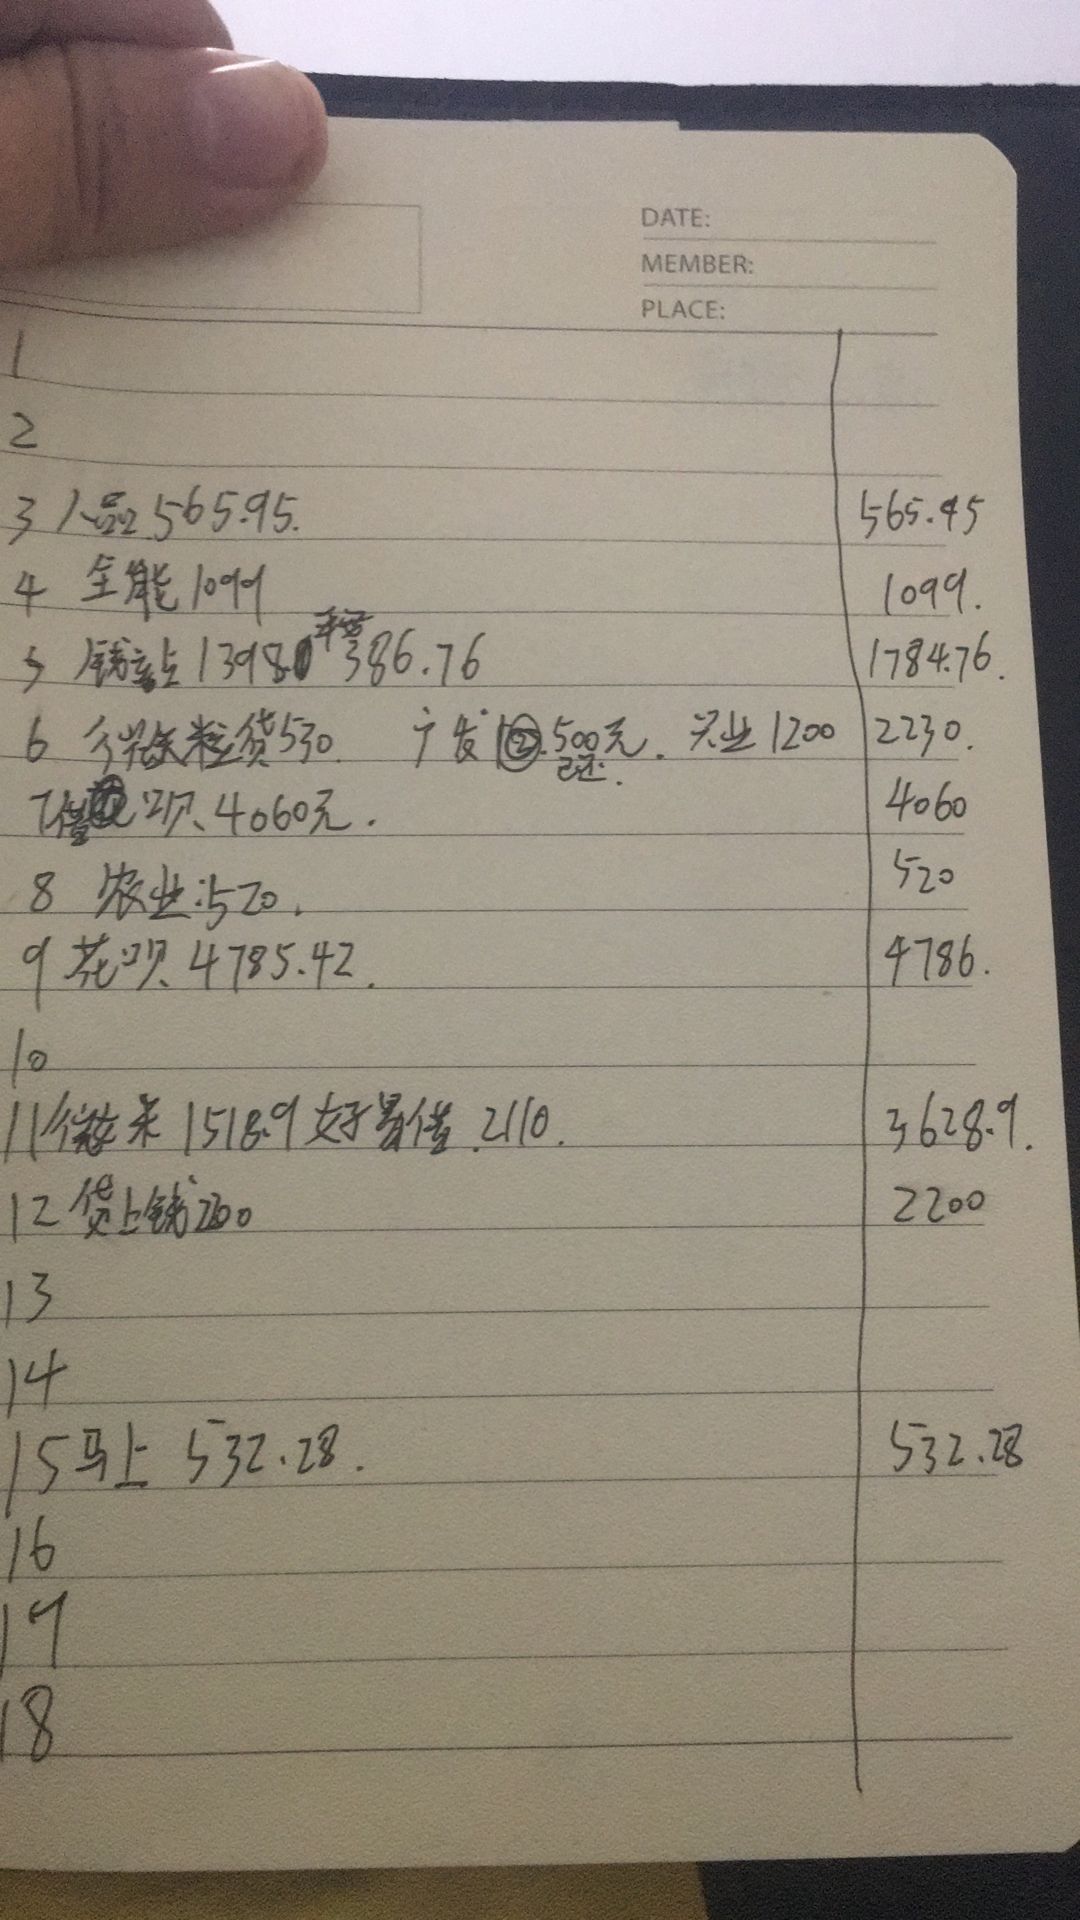 DATE:
MEMBER:
PLACE:
1
2
3 人品 565.95. 565.95
4 全能 1099 1099.
5 钱站 1398 386.76 1784.76.
6 微粒贷530 广发 500元. 兴业1200 2230.
已还.
7借呗、4060元. 4060
8 农业:520. 520
9 花呗、4785.42. 4786.
10
11 1518.9 好易借.2110. 3628.9.
12 贷上钱2200 2200
13
14
15马上 532.28. 532.28
16
17
18